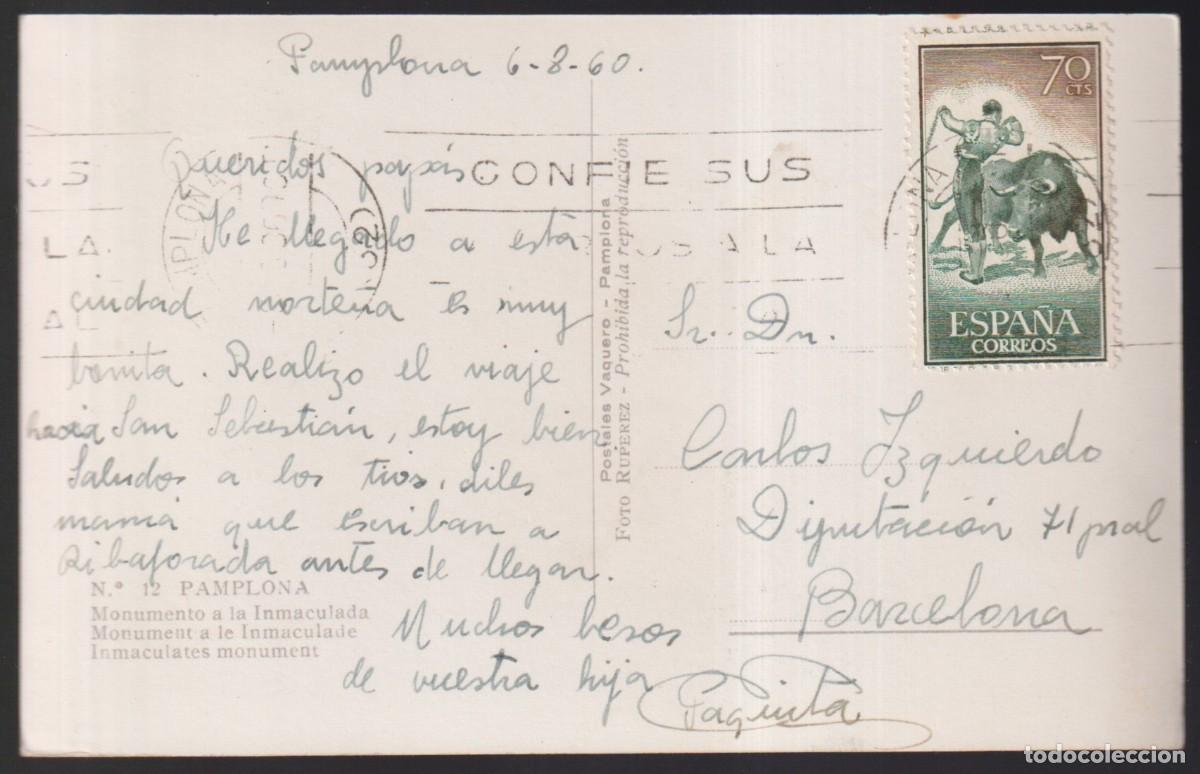 Pamplona 6-8-60.
Queridos papás
He llegado a esta
ciudad norteña es muy
bonita. Realizo el viaje
hacia San Sebastián, estoy bien
Saludos a los tios, diles
mamá que escriban a
Ribaforada antes de llegar.
Muchos besos
de vuestra hija
Paquita
Nº 12 PAMPLONA
Monumento a la Inmaculada
Monument a le Inmaculade
Inmaculates monument
Postales Vaquero - Pamplona
FOTO RUPEREZ - Prohibida la reproducción
CONFIE SUS
OS A LA
US
LA
AL
PLONA
70
CTS
ESPAÑA
CORREOS
Sr. Dn.
Carlos Izquierdo
Diputación 71 pral
Barcelona
todocoleccion.net